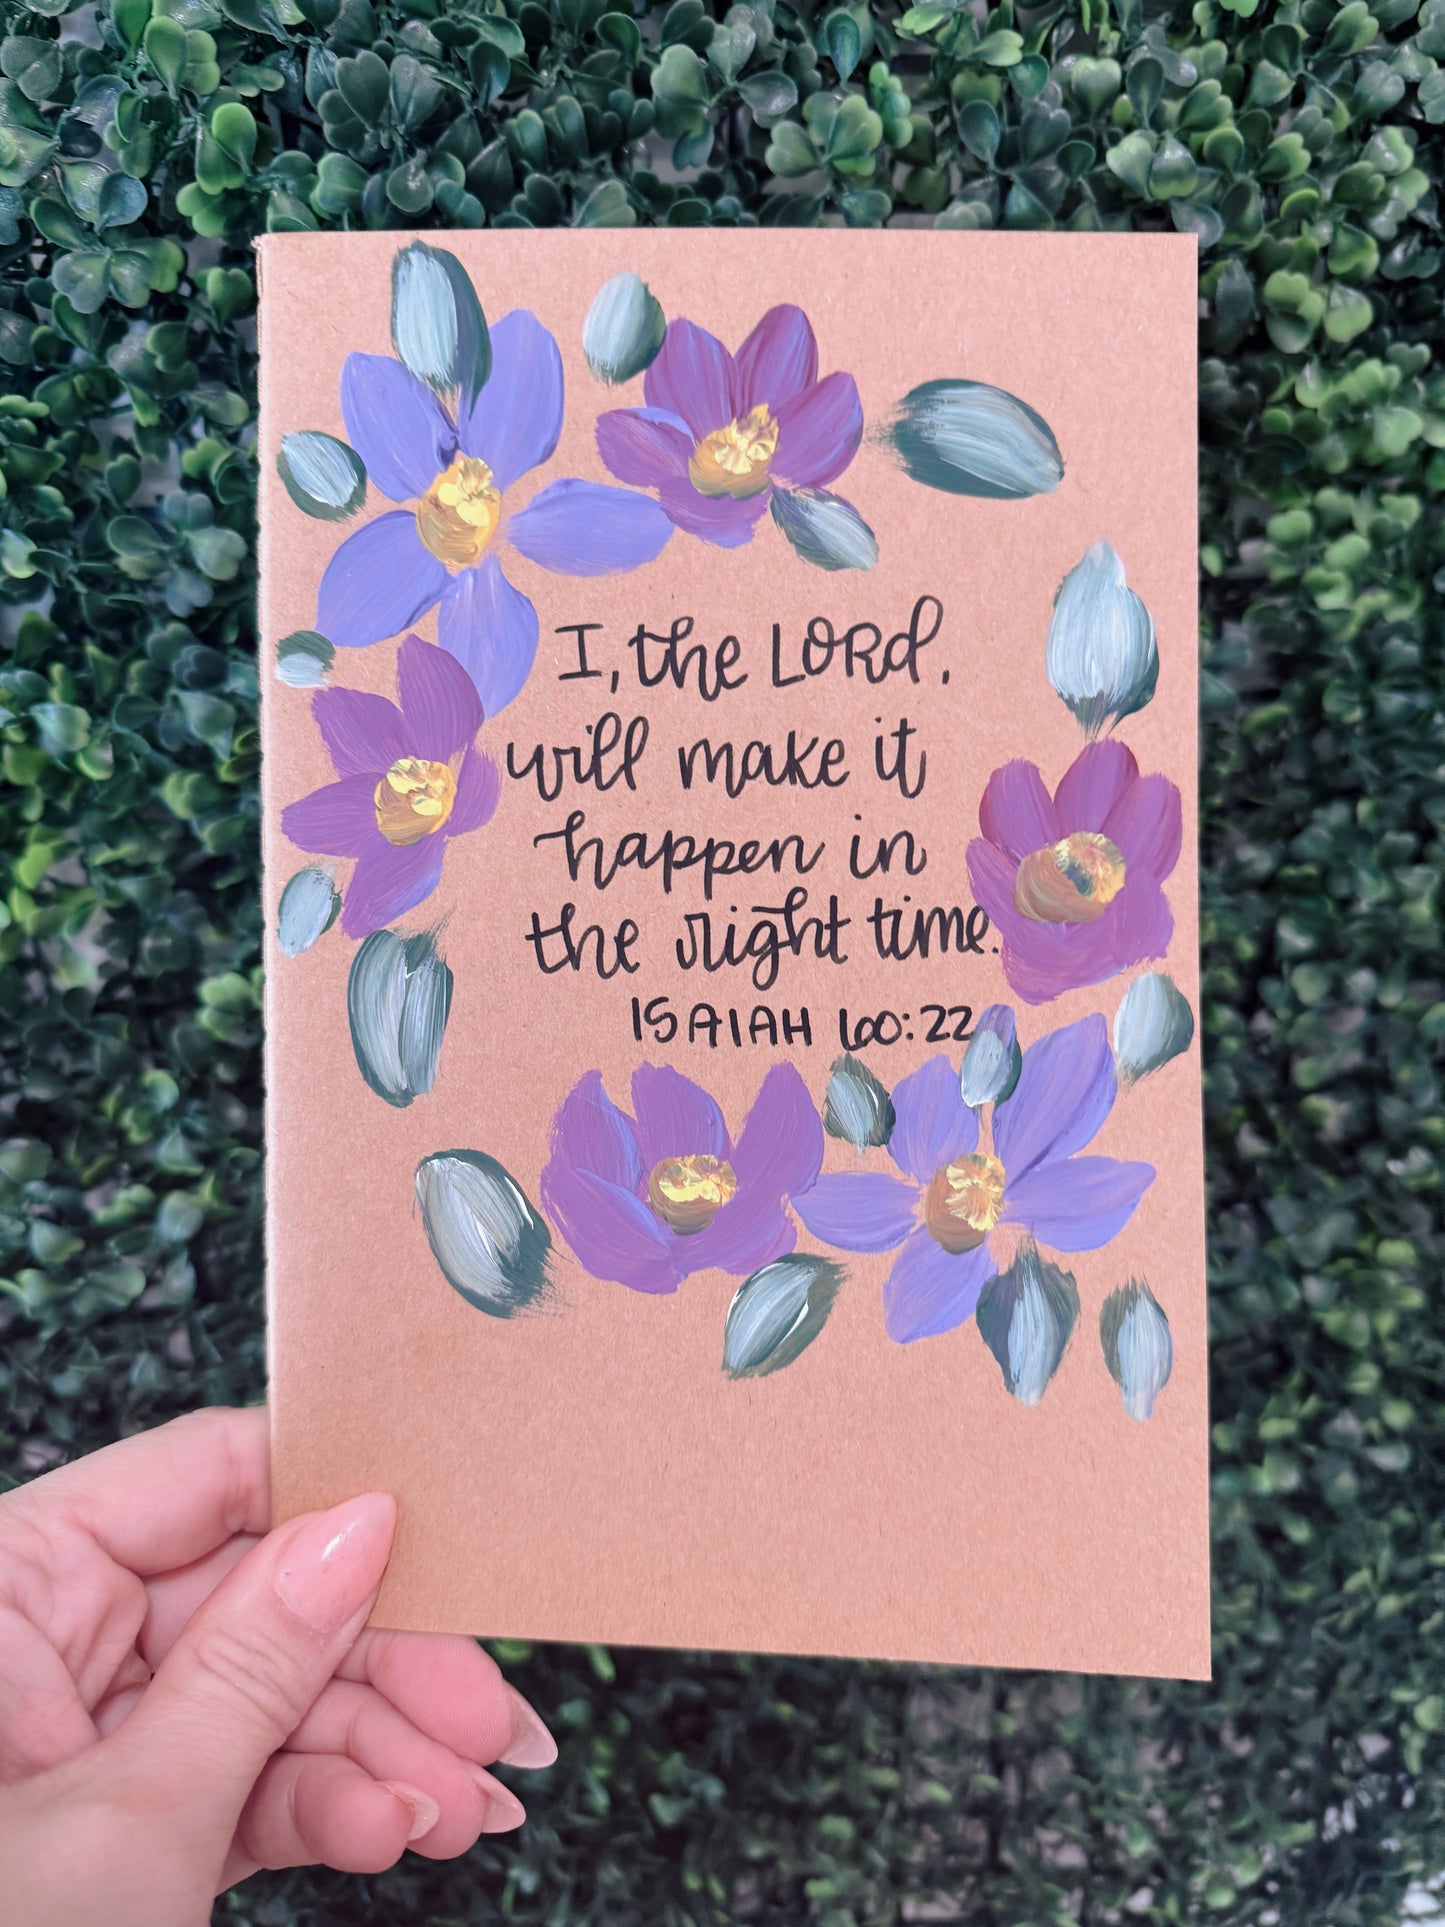 I, the LORD,
will make it
happen in
the right time.
ISAIAH 60:22